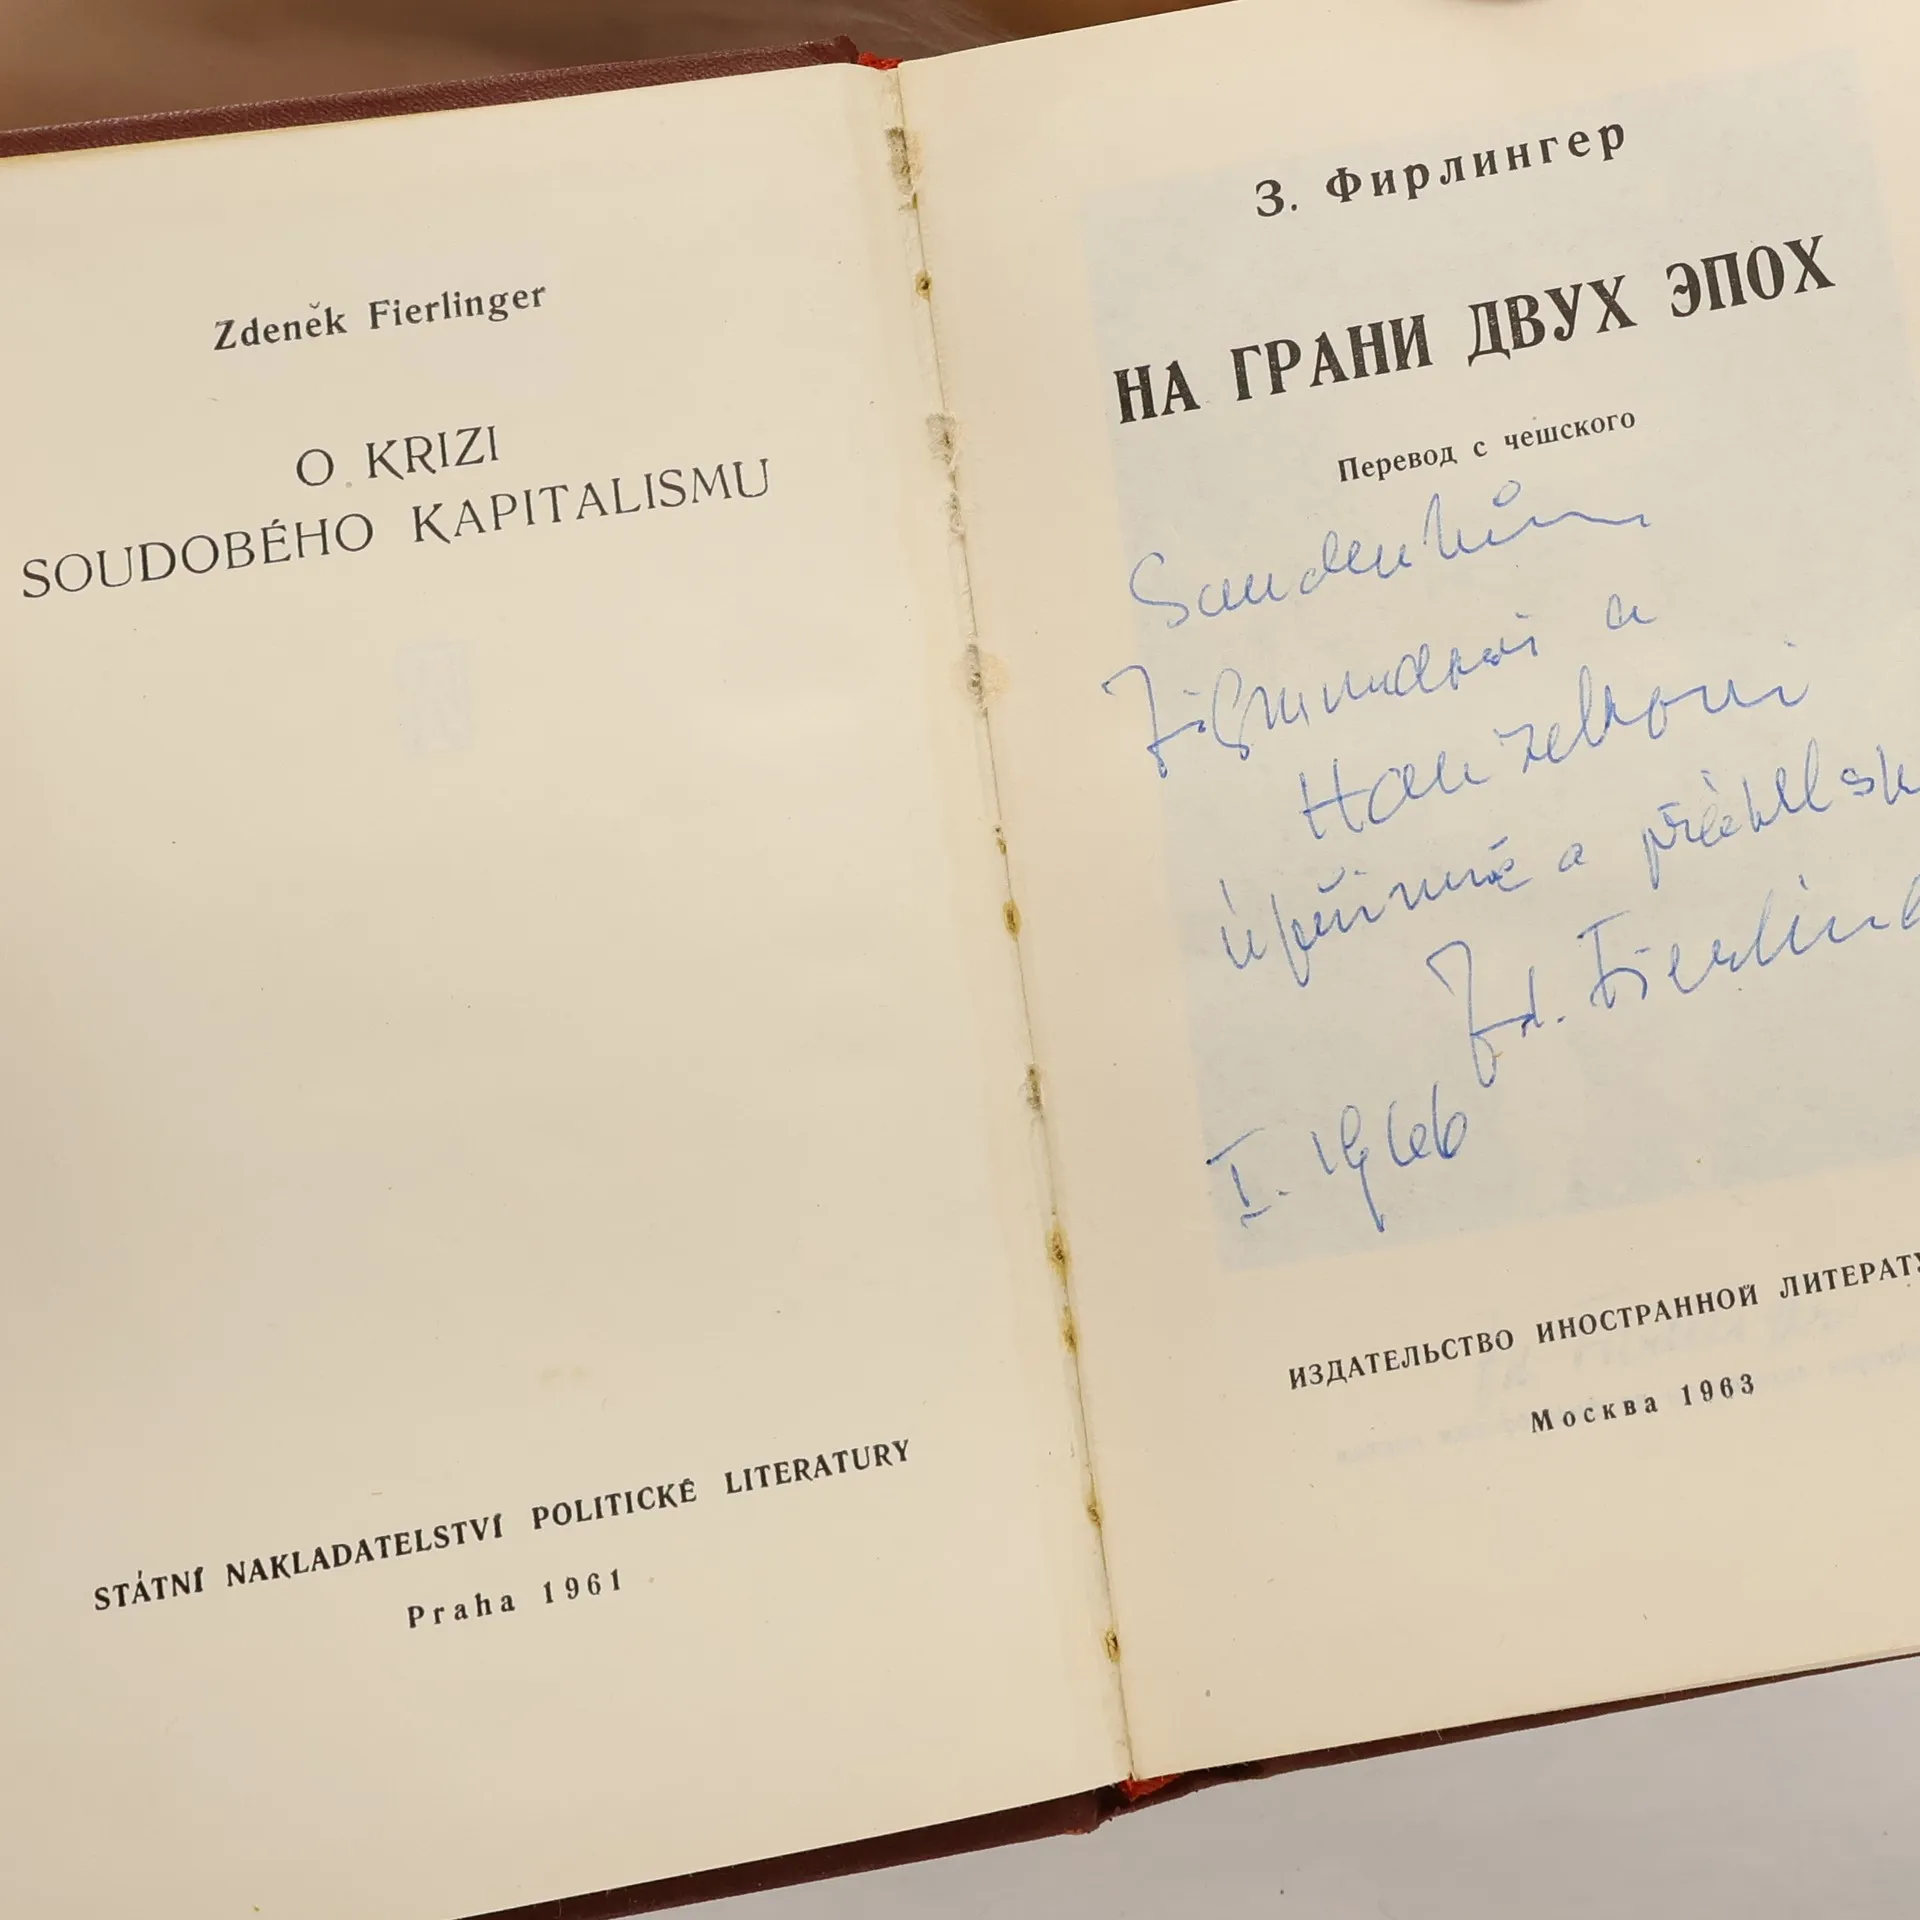 Zdeněk Fierlinger
O KRIZI
SOUDOBÉHO KAPITALISMU
STÁTNÍ NAKLADATELSTVÍ POLITICKÉ LITERATURY
Praha 1961
З. Фирлингер
НА ГРАНИ ДВУХ ЭПОХ
Перевод с чешского
Soudruhům
Zikmundovi a
Hanzelkovi
upřímně a přátelsk
Zd. Fierlin
I. 1966
ИЗДАТЕЛЬСТВО ИНОСТРАННОЙ ЛИТЕРАТУ
Москва 1963